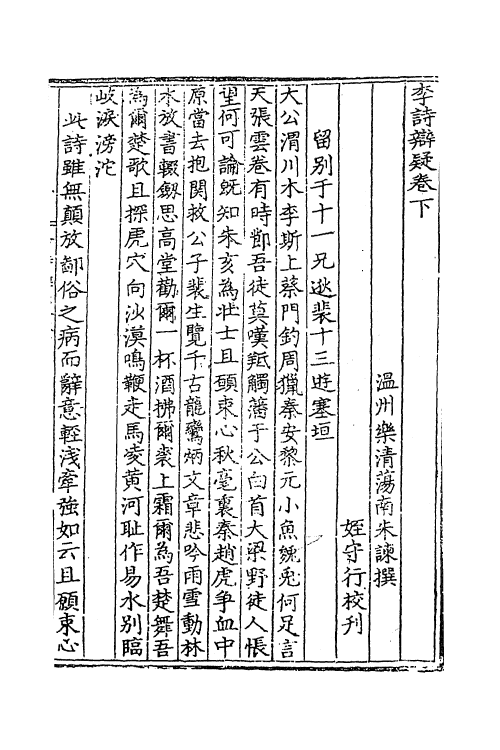 李詩辯疑卷下
温州樂清蕩南朱諫撰
姪守行校刋
留别于十一兄逖裴十三遊塞垣
大公渭川水李斯上蔡門釣周獵秦安黎元小魚䝟兎何足言
天張雲卷有時節吾徒莫嘆羝觸藩于公白首大梁野徒人悵
望何可論既知朱亥為壯士且願束心秋毫裏秦趙虎争血中
原當去抱關救公子裴生覽千古龍鸞炳文章悲吟雨雪動林
木放書輟劔思高堂勸爾一杯酒拂爾裘上霜爾為吾楚舞吾
為爾楚歌且探虎穴向沙漠鳴鞭走馬凌黄河耻作易水别臨
岐淚滂沱
此詩雖無顛放鄙俗之病而辭意輕淺牽強如云且願束心